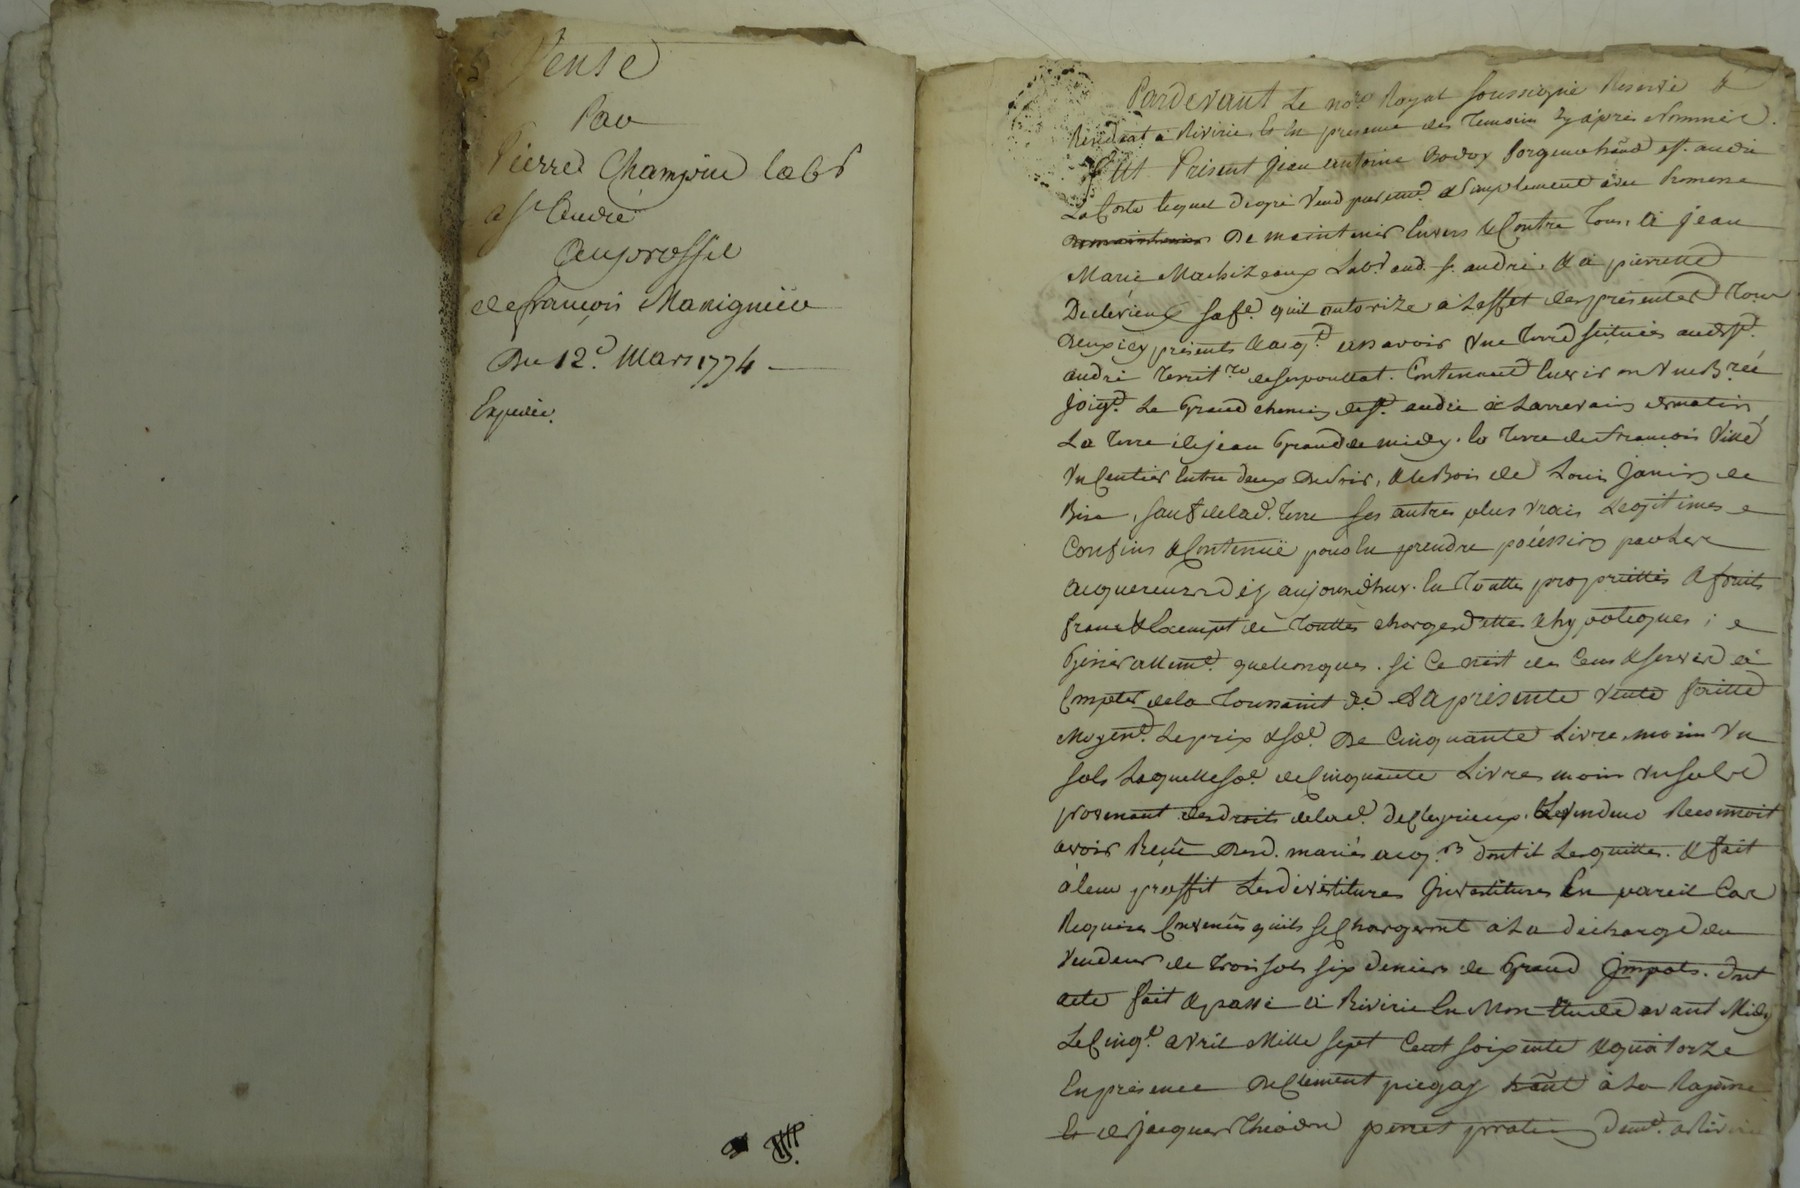 Vente
Par
Pierre Champin lab.r
a St André
Au proffit
de françois Manignière
Du 12.e Mars 1774
Expediée.
Pardevant Le no.re Royal soussigné Reservé &
Residant a Riverie & En presence des Temoins Cy après Nommés.
fut Present jean antoine Bador forgeur hãnt a St. andré
La Coste lequel de gré Vend purem.t & simplement avec Promesse
De maintenir Envers & Contre Tous, à jean
Marie Machizeaux Lab.r aud. St. andré, & à pierrette
Declérieux sa fe. quil autorize à Leffet des presentes Tous
Deux icy présents & acq.t assavoir Une Terre scituée aud. St.
andré Territ.re de Contenant Environ Une
joig.t Le Grand chemin de St. andré à Larrevain de matin,
La Terre de jean Grand de midy, la Terre de francois Villé
Un Sentier Entre deux De soir, & le Bois de Louis janin de
Bise, sauf de lad. Terre ses autres plus vrais & legitimes
Confins & Contenüe pour En prendre possession par Les
acquereurs dés aujourdhuy. En Touttes proprietés & fruits
franc & Exempt de Touttes charges dettes & hypoteques;
Générallem.t quelconques. si Ce n'est des Cens & servis à
Compter de la Toussaint d.e La présente Vente faitte
Moyen.t Le prix & so.e De Cinquante Livres moins Un
sols Laquelle so.e de Cinquante Livres moins Un sols
provenant des droits de lad. de Cleyrieux. Le Vendeur Reconnoit
avoir Reçû Desd. mariés acq.rs dont il Les quitte. & fait
à leur proffit Les devêtitures Investitures En pareil Cas
Requises Convenûs quils se Chargeront à La décharge du
Vendeur de trois sols six deniers de Grand Impots. Dont
acte fait & passé à Riverie En Mon Etude avant Midy
Le Cinq.e avril Mille sept Cent soixente & quatorze
En présence De Clement piegay hãnt à La Rajasse
Et de jacques Théodre perret praticien Dem.t a Riverie